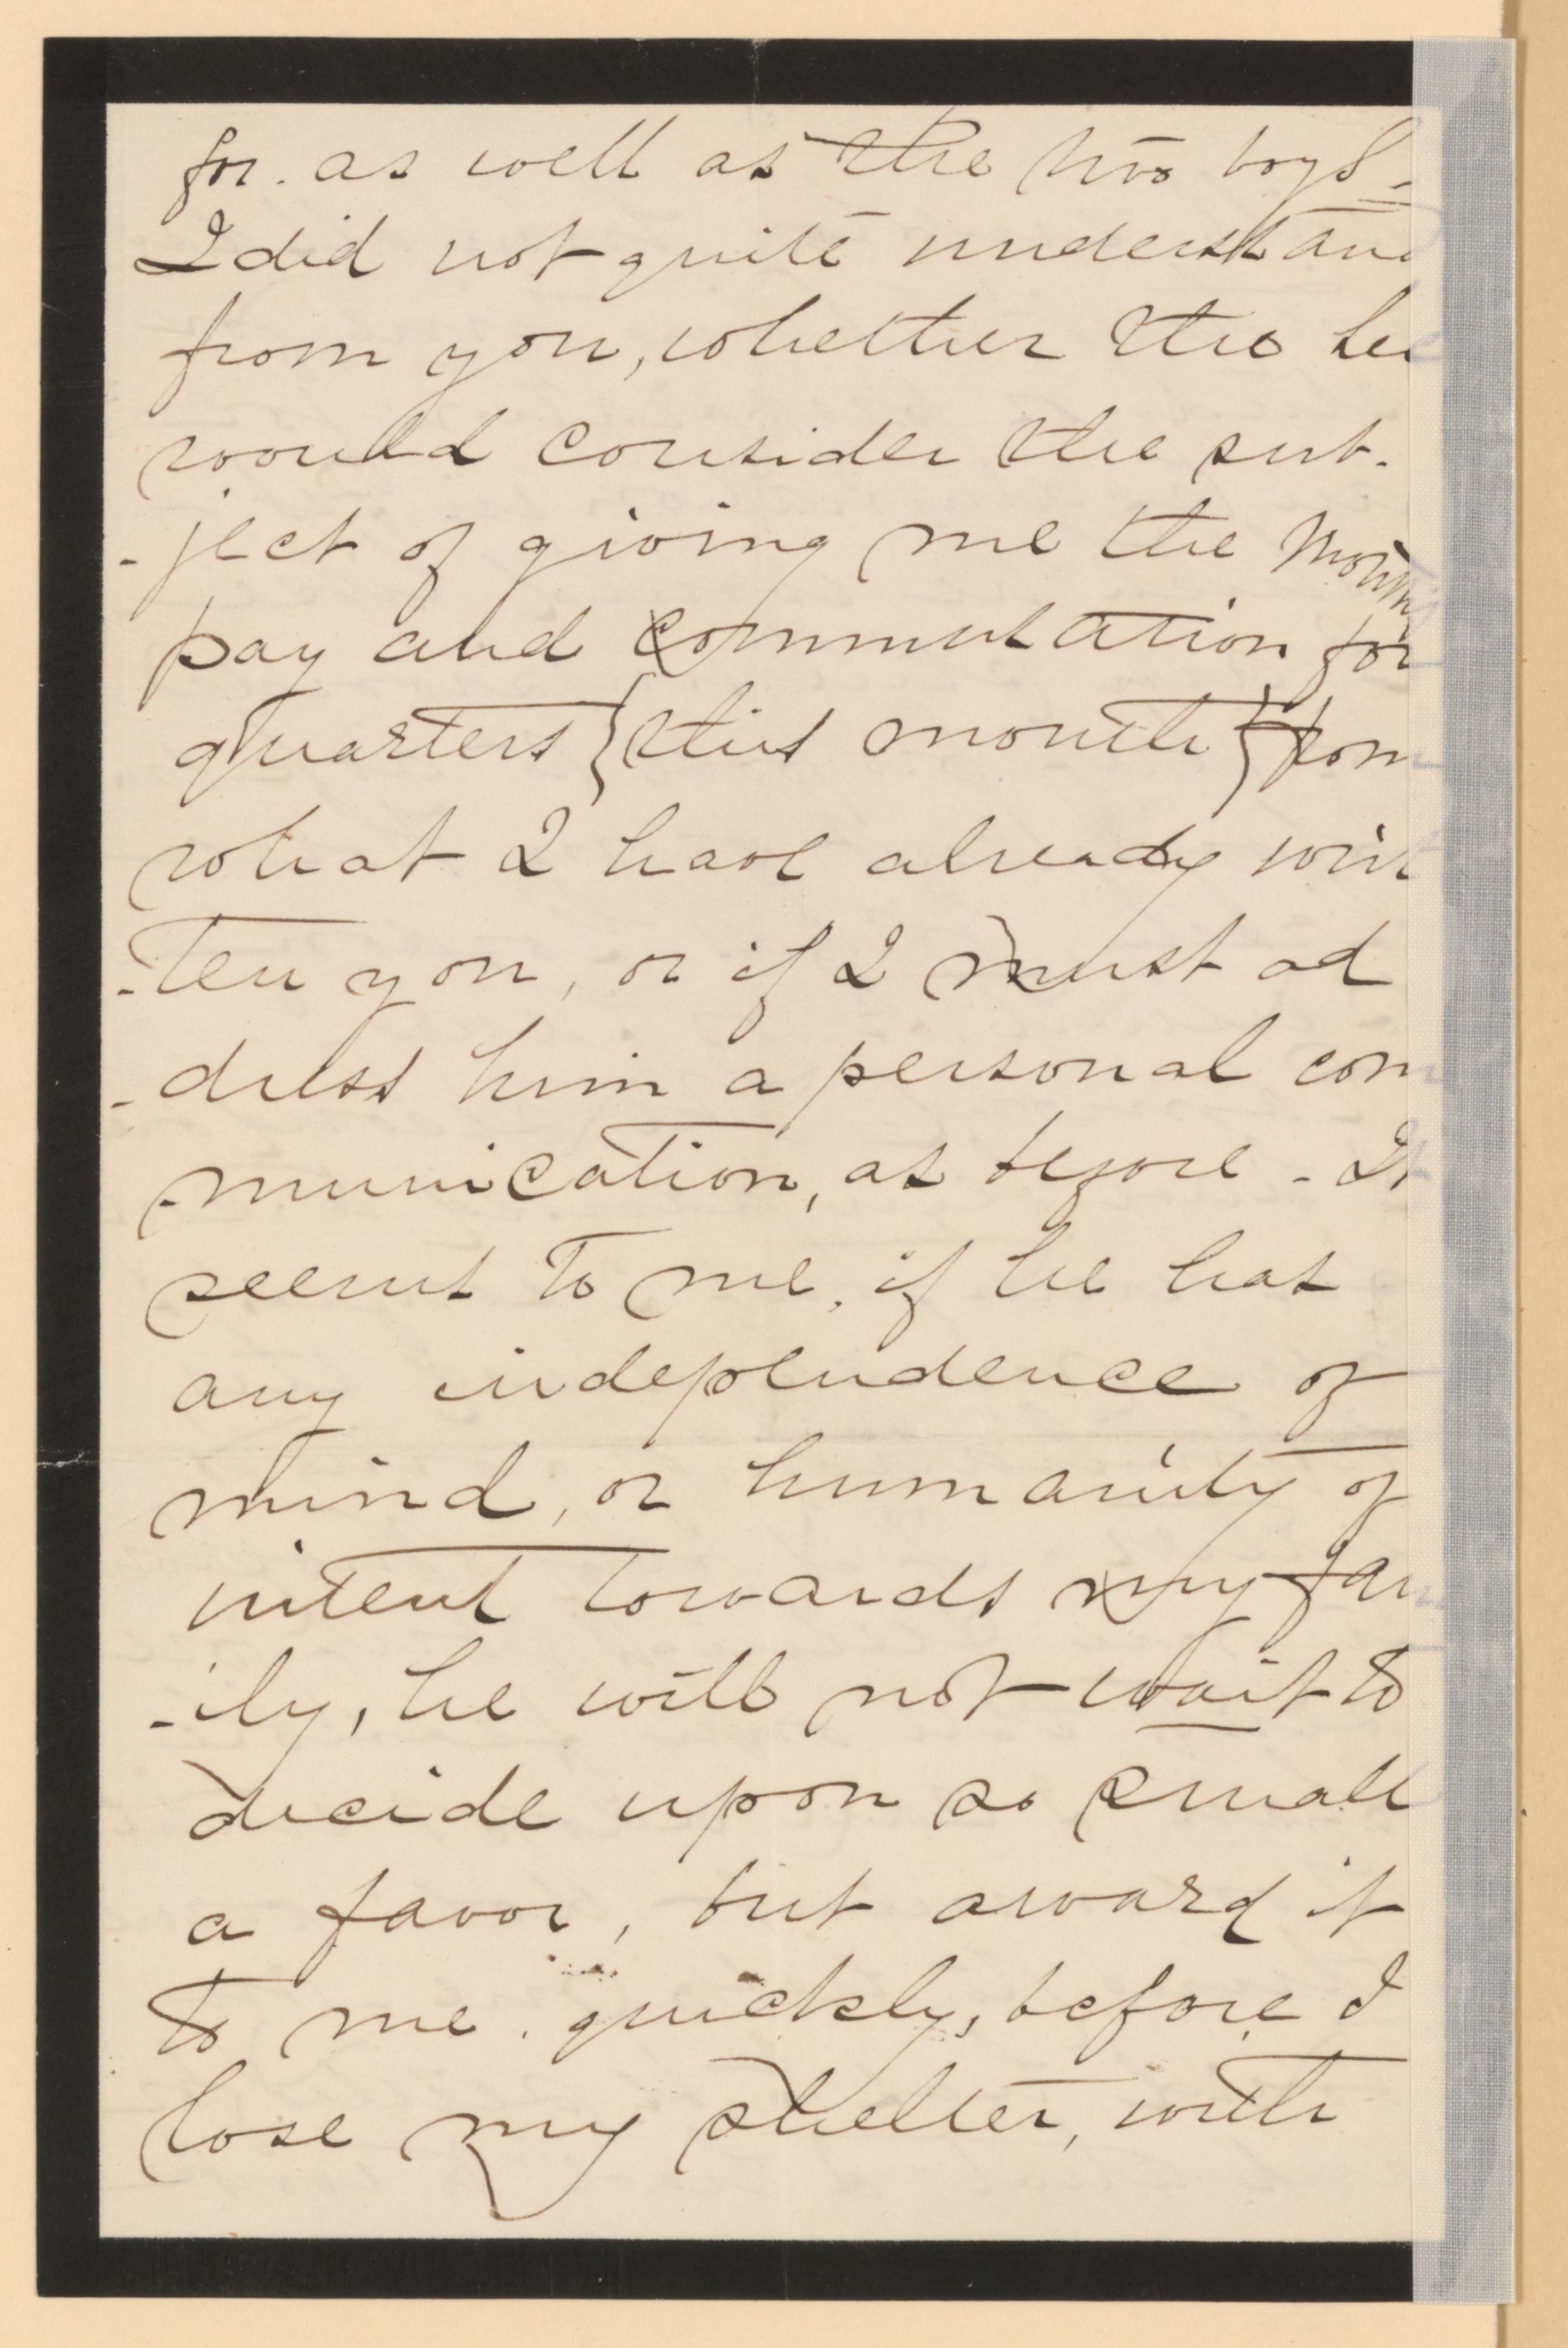 for. as well as the two boys -
I did not quite understand
from you, whether the he
would consider the sub-
-ject of giving me the
pay and commutation for
quarters {this month} from
what I have already writ
-ten you, or if I must ad
-dress him a personal com
-munication, as before - It
seems to me, if he has
any independence of
mind, or humanity of
intent towards my fam
-ily, he will not wait to
decide upon so small
a favor, but award it
to me. quickly, before I
lose my shelter, with